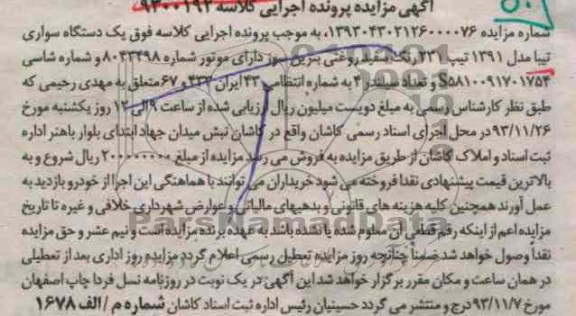 آگهی مزایده پرونده اجرایی کلاسه ۹۳۰۰۱۹۲
شماره مزایده ۱۳۹۳۰۴۳۰۲۱۲۶۰۰۰۰۷۶، به موجب پرونده اجرایی کلاسه فوق یک دستگاه سواری
تیبا مدل ۱۳۹۱ تیپ ۲۳۱ رنگ سفید روغنی بنزین سوز دارای موتور شماره ۸۰۴۳۴۹۸ و شماره شاسی
S۵۸۱۰۰۹۱۷۰۱۷۵۴ و تعداد سیلندر ۴ به شماره انتظامی ۴۳ ایران ۴۳۲ و ۶۷ متعلق به مهدی رحیمی که
طبق نظر کارشناس رسمی به مبلغ دویست میلیون ریال ارزیابی شده از ساعت ۹ الی ۱۲ روز یکشنبه مورخ
۹۳/۱۱/۲۶ در محل اجرای اسناد رسمی کاشان واقع در کاشان نبش میدان جهاد ابتدای بلوار باهنر اداره
ثبت اسناد و املاک کاشان از طریق مزایده به فروش می رسد مزایده از مبلغ ۲۰۰۰۰۰۰۰۰ ریال شروع و به
بالاترین قیمت پیشنهادی نقدا فروخته می شود خریداران می توانند با هماهنگی این اجرا از خودرو بازدید به
عمل آورند همچنین کلیه هزینه های قانونی و بدهیهای مالیاتی و عوارض شهرداری خلافی و غیره تا تاریخ
مزایده اعم از اینکه رقم قطعی آن معلوم شده یا نشده باشد به عهده برنده مزایده است و نیم عشر و حق مزایده
نقدا وصول خواهد شد ضمنا چنانچه روز مزایده تعطیل رسمی اعلام گردد مزایده روز اداری بعد از تعطیلی
در همان ساعت و مکان مقرر برگزار خواهد شد این آگهی در یک نوبت در روزنامه نسل فردا چاپ اصفهان
مورخ ۹۳/۱۱/۷ درج و منتشر می گردد حسینیان رئیس اداره ثبت اسناد کاشان شماره م / الف ۱۶۷۸
ParsNamadData